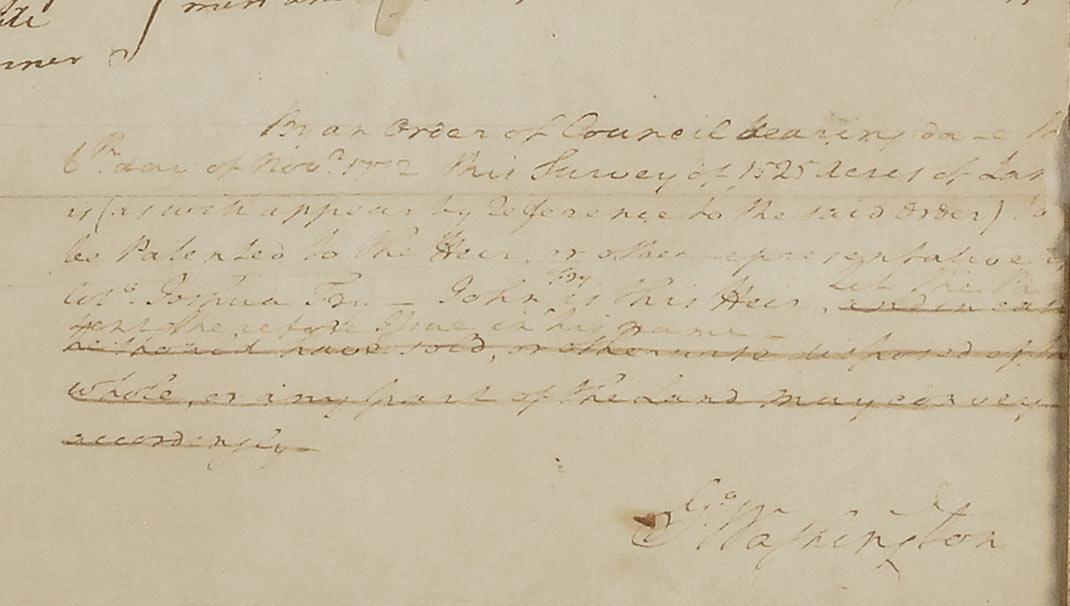 By an Order of Council bearing date
6th. day of Novr. 1772 this Survey of 1525 Acres of Lan
is (as will appear by reference to the said Order) to
be Patented to the Heir, or other representative
Colo. Joshua Fry — John Fry is this Heir, let the Pa
and in case
tent therefore Issue in his name —
he should have sold, or otherwise disposed of th
whole, or any part of the Land may convey
accordingly
Go. Washington